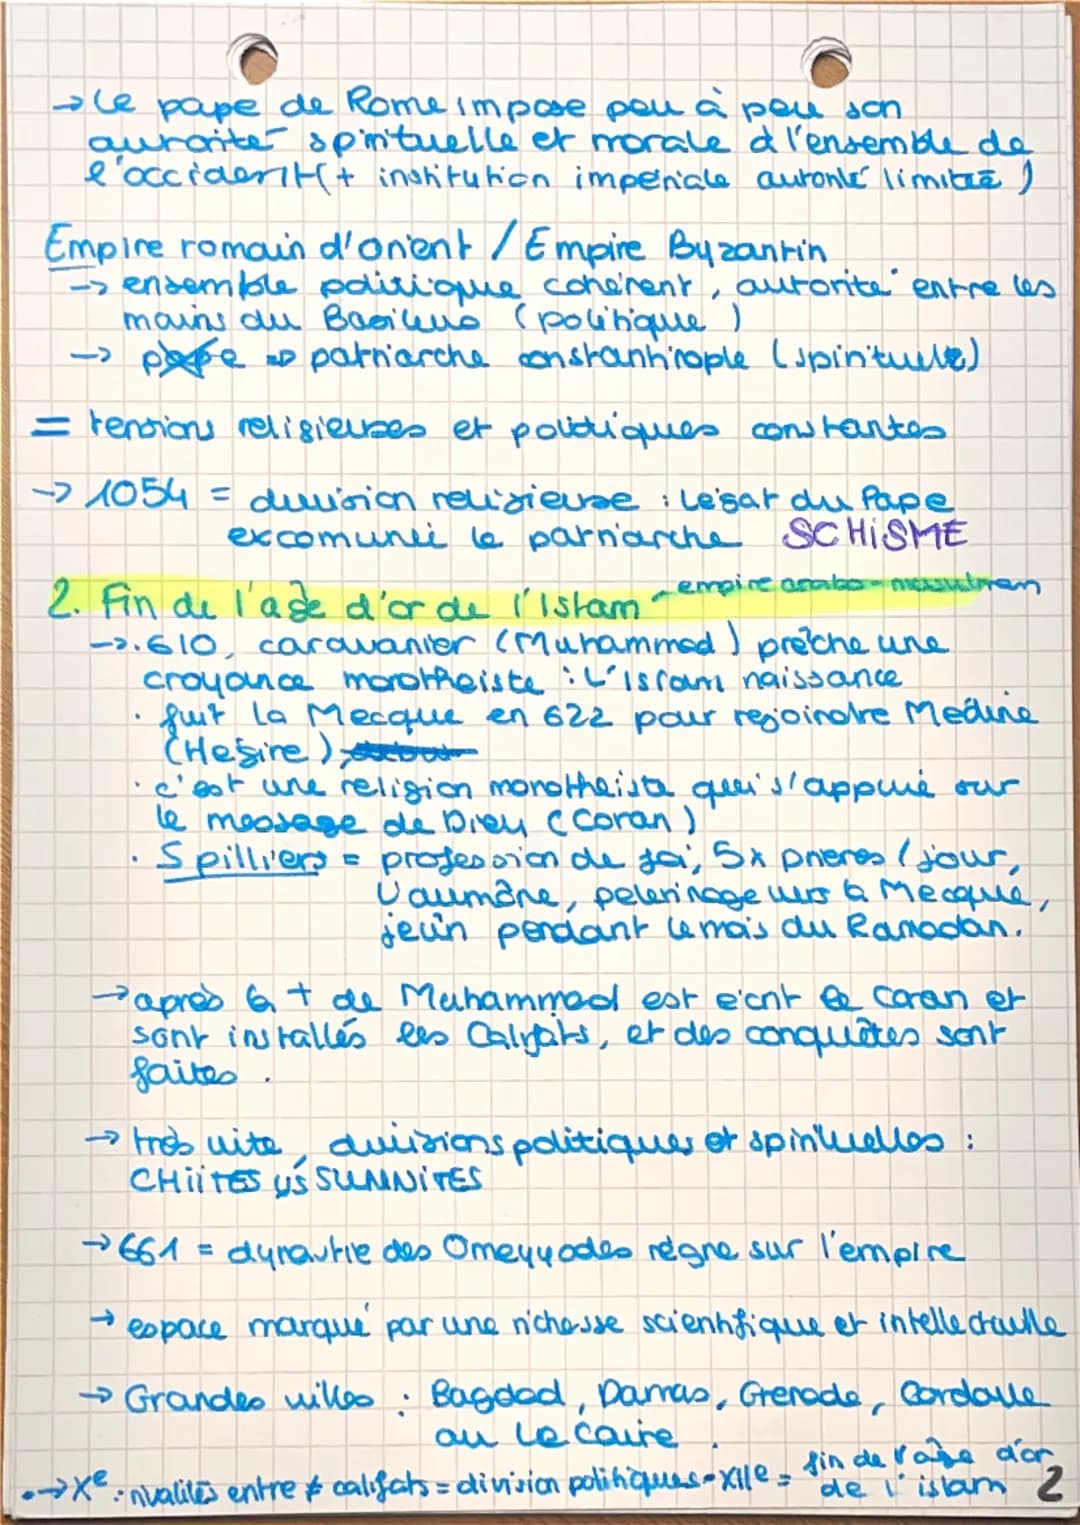 → Le pape de Rome impose peu à peu son
auroité spirituelle et morale à l'ensemble de
l'occident (+ institution impériale autorité limitée)
Empire romain d'orient / Empire Byzantin
→ ensemble politique cohérent, autorité entre les
mains du Basileus (politique)
→ pape => patriarche constantinople (spirituelle)
= tensions religieuses et politiques constantes
→ 1054 = division religieuse : légat du Pape
excomunié le patriarche SCHISME
2. Fin de l'age d'or de l'Islam - empire arabo-musulman
→ . 610, caravanier (Muhammed) prêche une
croyance monotheiste : L'Islam naissance
. fuit la Mecque en 622 pour rejoindre Medine
(Hegire)
. c'est une religion monotheiste qui s'appuie sur
le message de Dieu (Coran)
. 5 pilliers = profession de foi, 5x prieres / jour,
l'aumône, pelerinage vers la Mecque,
jeûn pendant le mois du Ramadan.
→ après la + de Muhammed est écrit le Coran et
sont installés les Califats, et des conquêtes sont
faites.
→ très vite, divisions politiques et spirituelles :
CHIITES VS SUNNITES
→ 661 = dynastie des Omeyyades règne sur l'empire
→ espace marqué par une richesse scientifique et intellectuelle
→ Grandes villes : Bagdad, Damas, Grenade, Cordoue
ou Le Caire.
• → Xe : rivalités entre ≠ califats = division politiques - XIIe = fin de l'age d'or
de l'islam 2